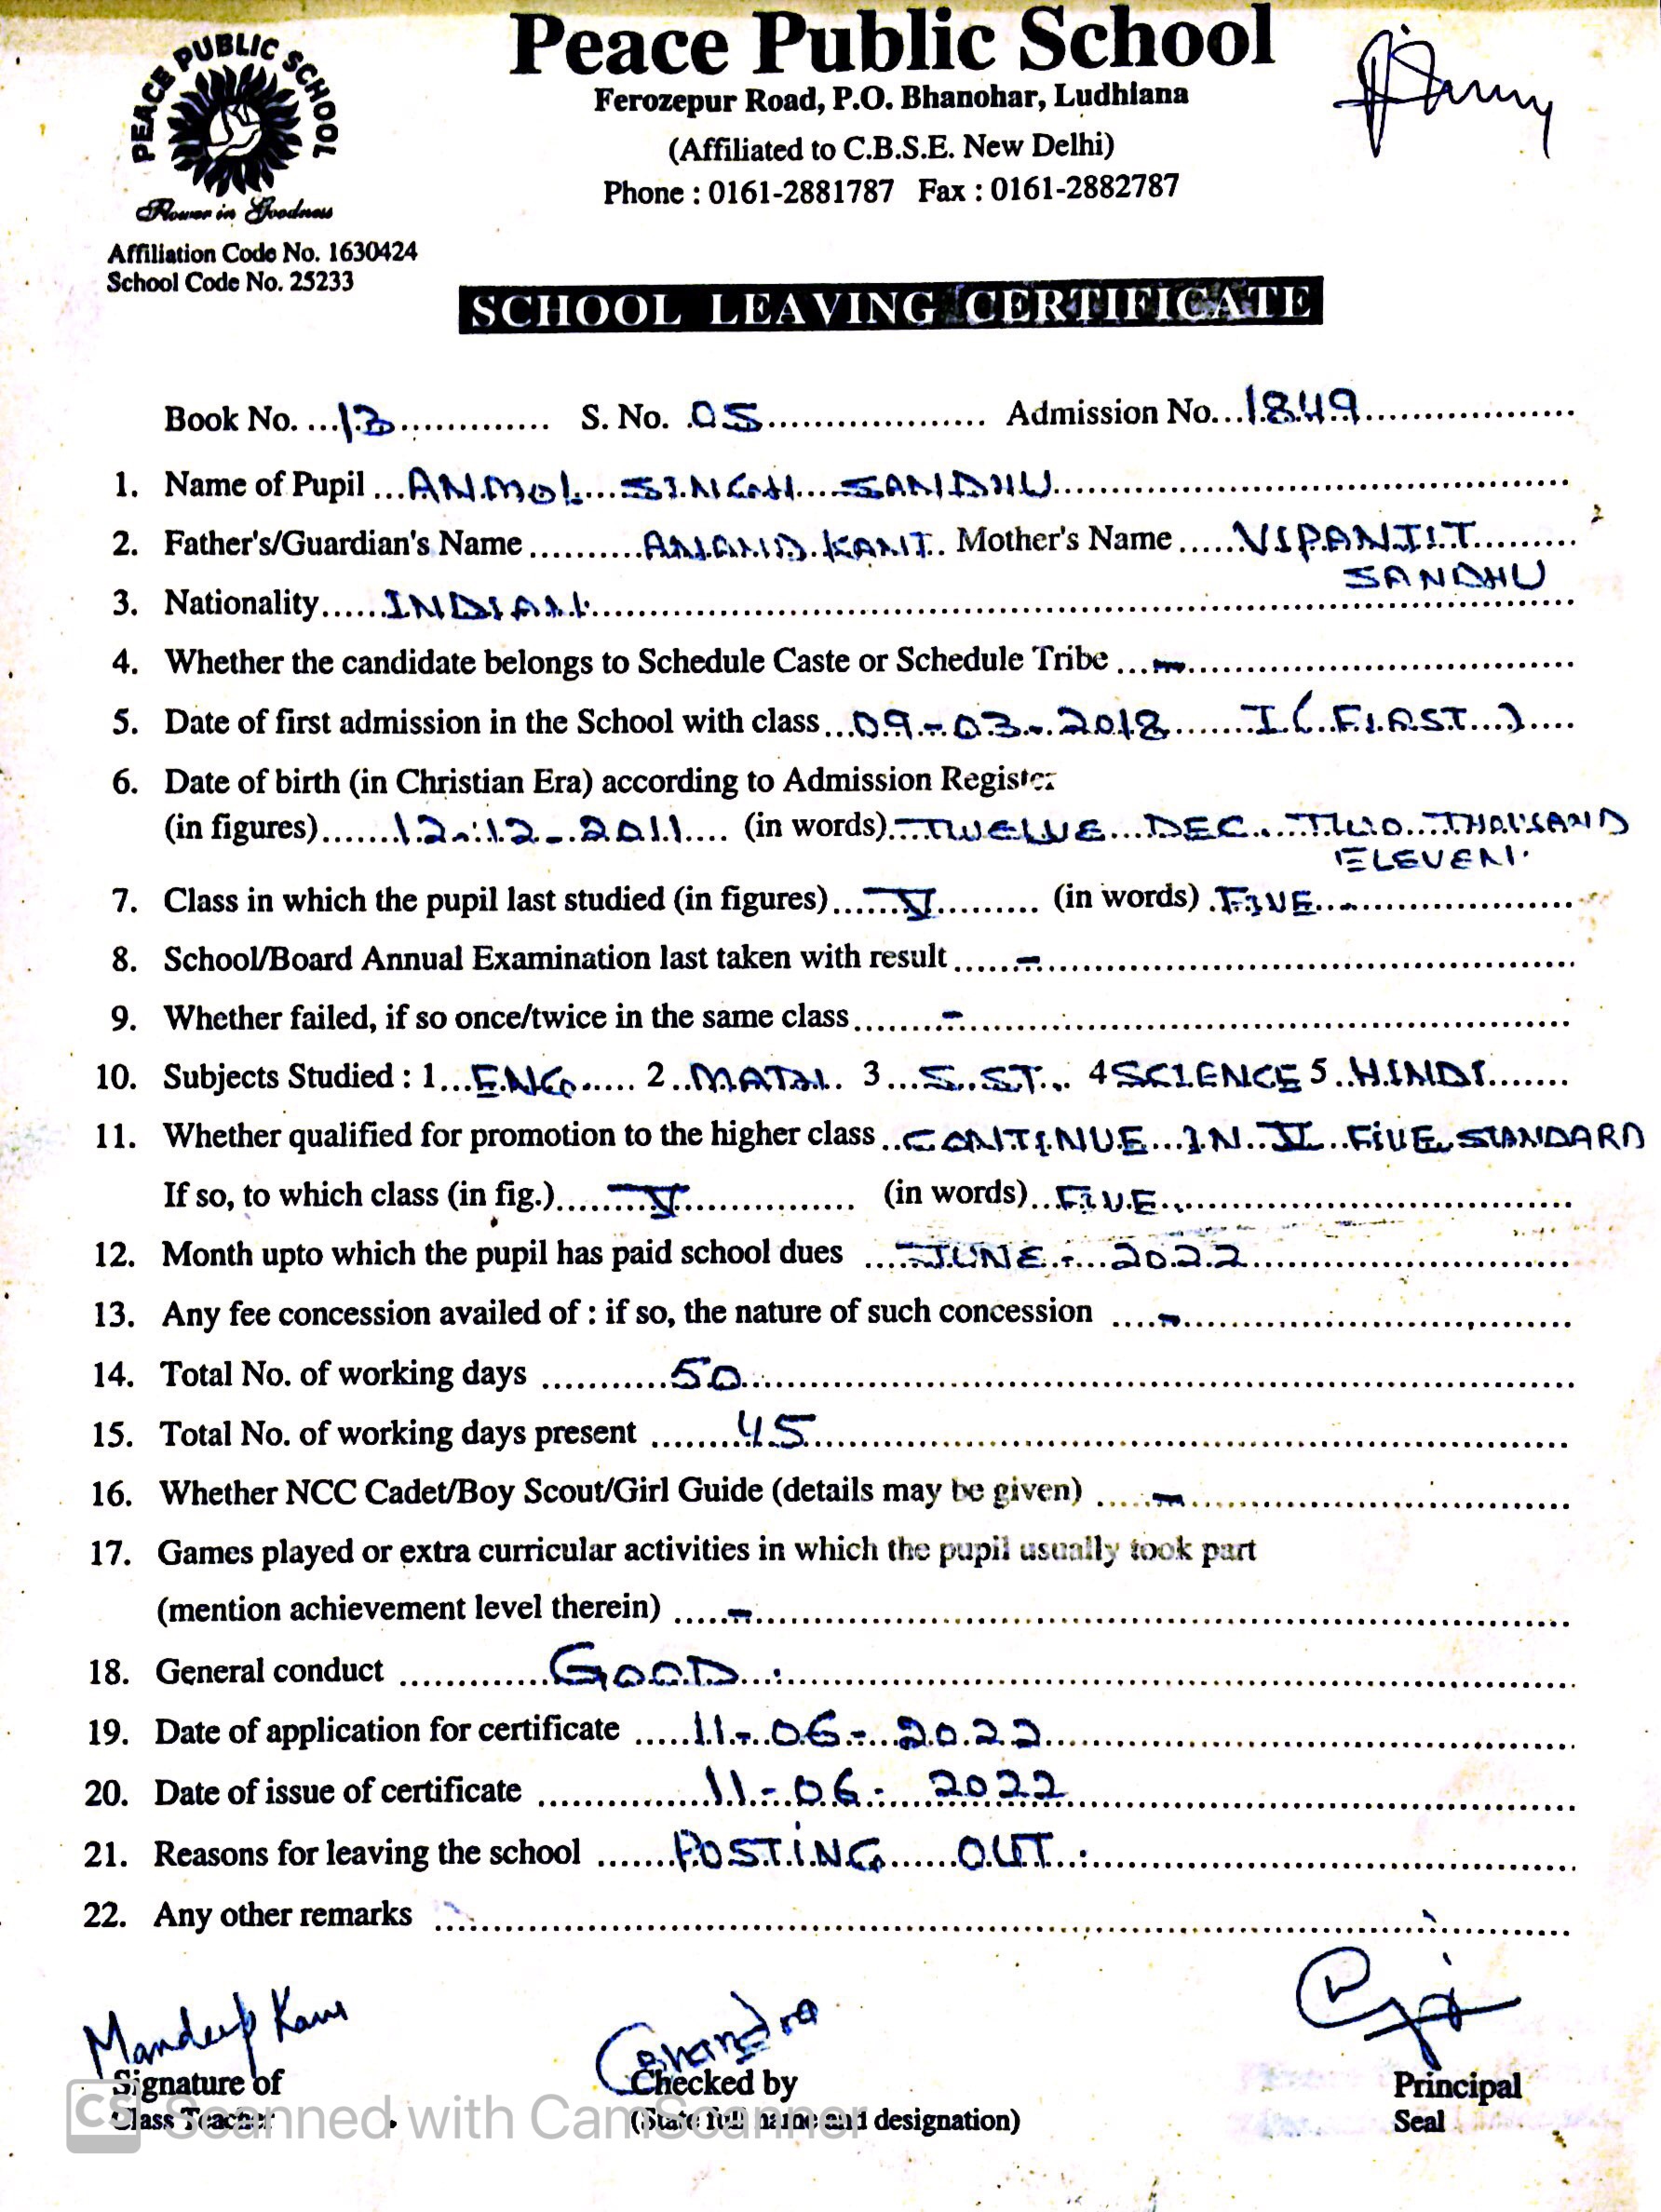 PEACE PUBLIC SCHOOL
Flower in Goodness
Affiliation Code No. 1630424
School Code No. 25233
Peace Public School
Ferozepur Road, P.O. Bhanohar, Ludhiana
(Affiliated to C.B.S.E. New Delhi)
Phone : 0161-2881787 Fax : 0161-2882787
SCHOOL LEAVING CERTIFICATE
Book No. ...13............. S. No. .05.................... Admission No...1849...................
1. Name of Pupil ...ANMOL SINGH SANDHU...................................................
2. Father's/Guardian's Name ..........ANAND KANT.. Mother's Name .....VIPANJIT.........
SANDHU
3. Nationality......INDIAN..............................................................................
4. Whether the candidate belongs to Schedule Caste or Schedule Tribe ...-.....................................
5. Date of first admission in the School with class ...09-03-2018.......I (FIRST)....
6. Date of birth (in Christian Era) according to Admission Register
(in figures).......12-12-2011.... (in words).TWELVE DEC. TWO THOUSAND
ELEVEN.
7. Class in which the pupil last studied (in figures)......V.......... (in words) .FIVE.........................
8. School/Board Annual Examination last taken with result ......-......................................................
9. Whether failed, if so once/twice in the same class........-.............................................................
10. Subjects Studied : 1...ENG...... 2..MATH.. 3...S.ST... 4 SCIENCE 5..HINDI.......
11. Whether qualified for promotion to the higher class ..CONTINUE IN V FIVE STANDARD
If so, to which class (in fig.)........V................ (in words)...FIVE.......................................
12. Month upto which the pupil has paid school dues ....JUNE - 2022................................
13. Any fee concession availed of : if so, the nature of such concession ....-.......................................
14. Total No. of working days ...........50.................................................................................
15. Total No. of working days present ........45.........................................................................
16. Whether NCC Cadet/Boy Scout/Girl Guide (details may be given) .....-.....................................
17. Games played or extra curricular activities in which the pupil usually took part
(mention achievement level therein) .....-...............................................................................
18. General conduct .............GOOD...:................................................................................
19. Date of application for certificate .....11-06-2022.....................................................
20. Date of issue of certificate ...............11-06-2022.....................................................
21. Reasons for leaving the school .......POSTING OUT..:................................................
22. Any other remarks ..........................................................................................................
Mandeep Kaur
Chandra
Signature of
Class Teacher
Checked by
(State full name and designation)
Principal
Seal
CS Scanned with CamScanner